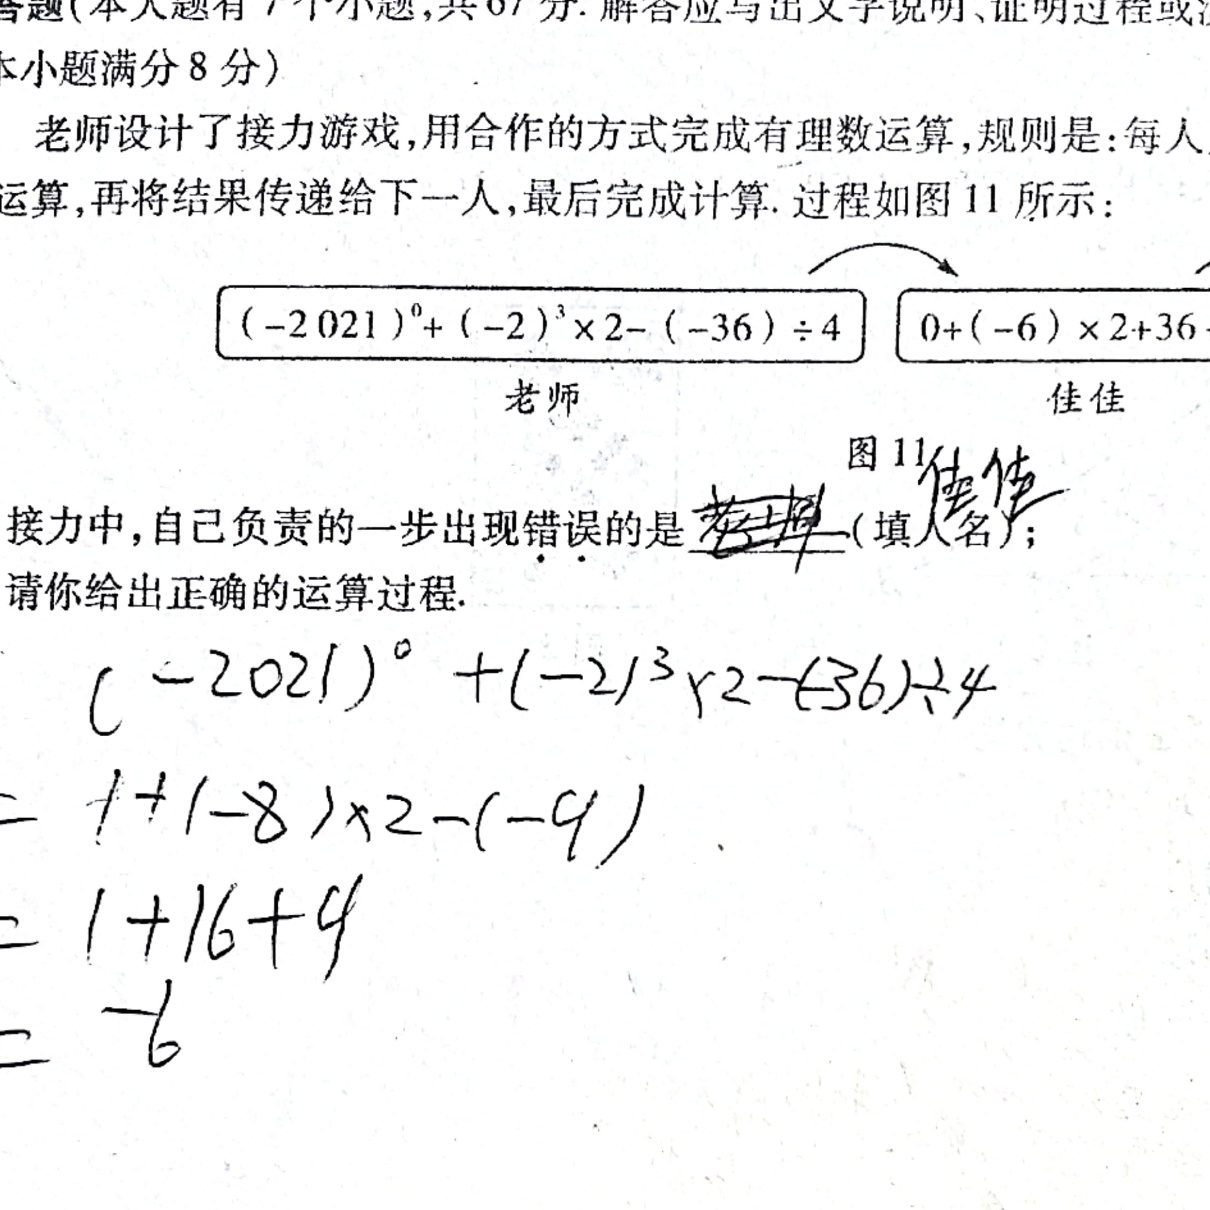 答题(本大题有7个小题,共67分.解答应写出文字说明、证明过程或
本小题满分8分)
老师设计了接力游戏,用合作的方式完成有理数运算,规则是:每人
运算,再将结果传递给下一人,最后完成计算.过程如图11所示:
(-2021)⁰+(-2)³×2-(-36)÷4
0+(-6)×2+36
老师
佳佳
图11
佳佳
接力中,自己负责的一步出现错误的是 (填人名);
请你给出正确的运算过程.
(-2021)⁰+(-2)³×2-(-36)÷4
= 1+(-8)×2-(-9)
= 1+16+9
= -6